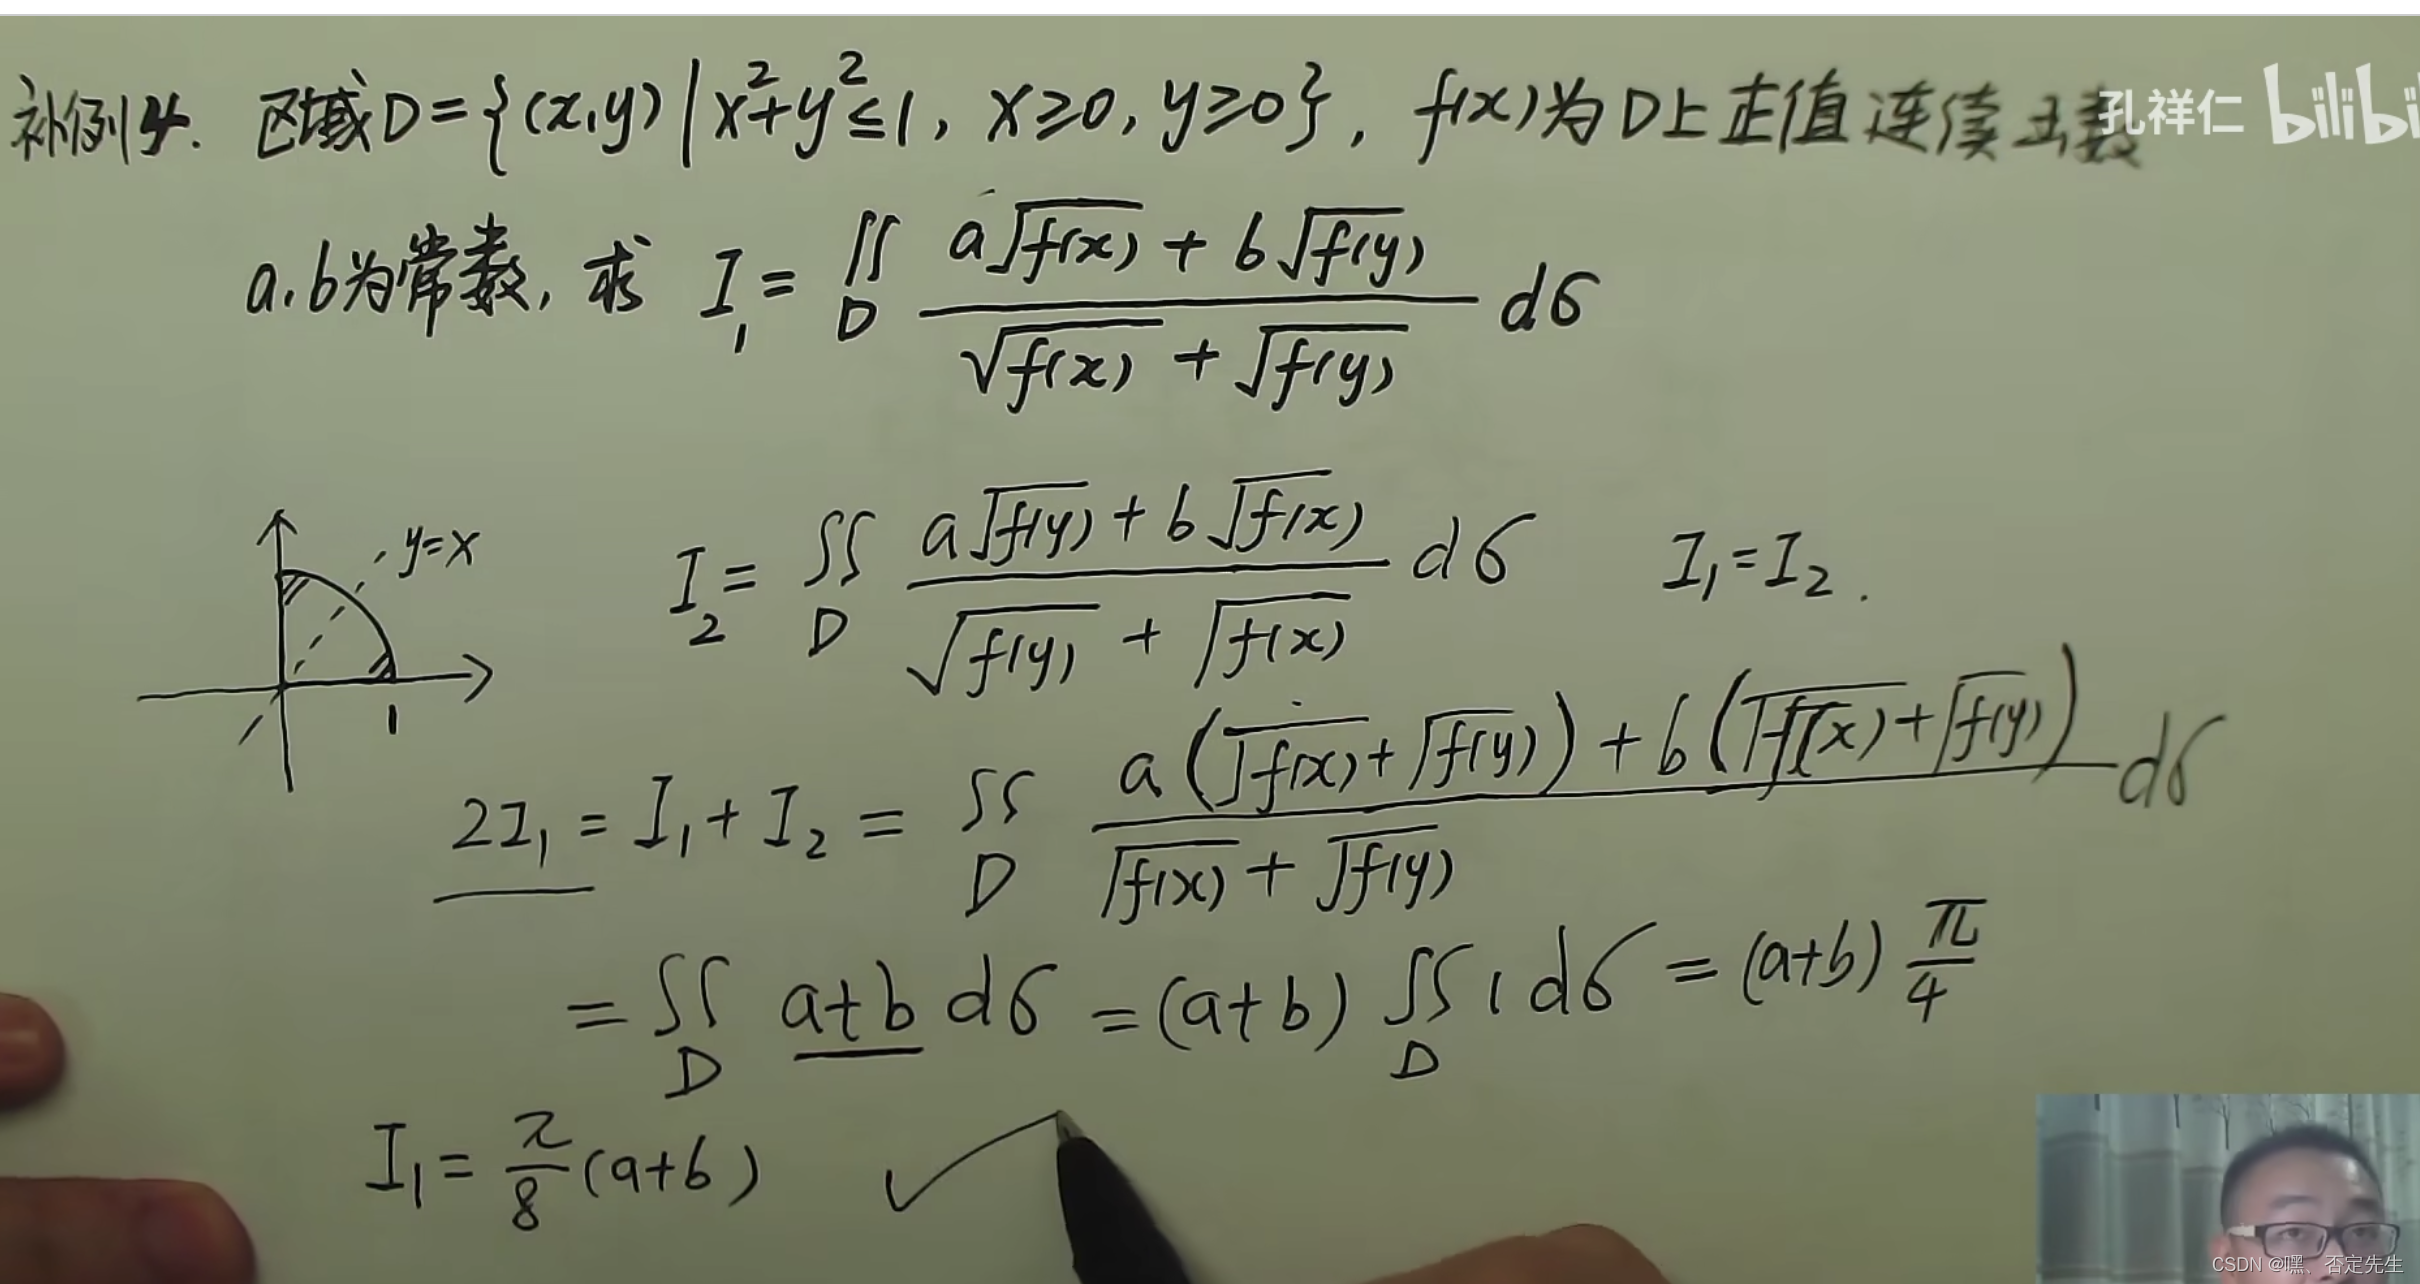 补例4. 区域D={(x,y)|x²+y²≤1, x≥0, y≥0}, f(x)为D上正值连续函数
孔祥仁 bilibi
a,b为常数, 求 I₁ = ∬_D (a√f(x) + b√f(y)) / (√f(x) + √f(y)) dσ
y=x
1
I₂ = ∬_D (a√f(y) + b√f(x)) / (√f(y) + √f(x)) dσ I₁=I₂.
2I₁ = I₁+I₂ = ∬_D (a(√f(x)+√f(y)) + b(√f(x)+√f(y))) / (√f(x) + √f(y)) dσ
= ∬_D a+b dσ = (a+b) ∬_D 1 dσ = (a+b) π/4
I₁ = π/8 (a+b)
CSDN @嘿、否定先生